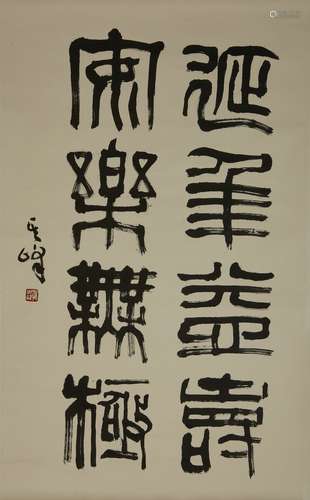 延年益壽
安樂無極